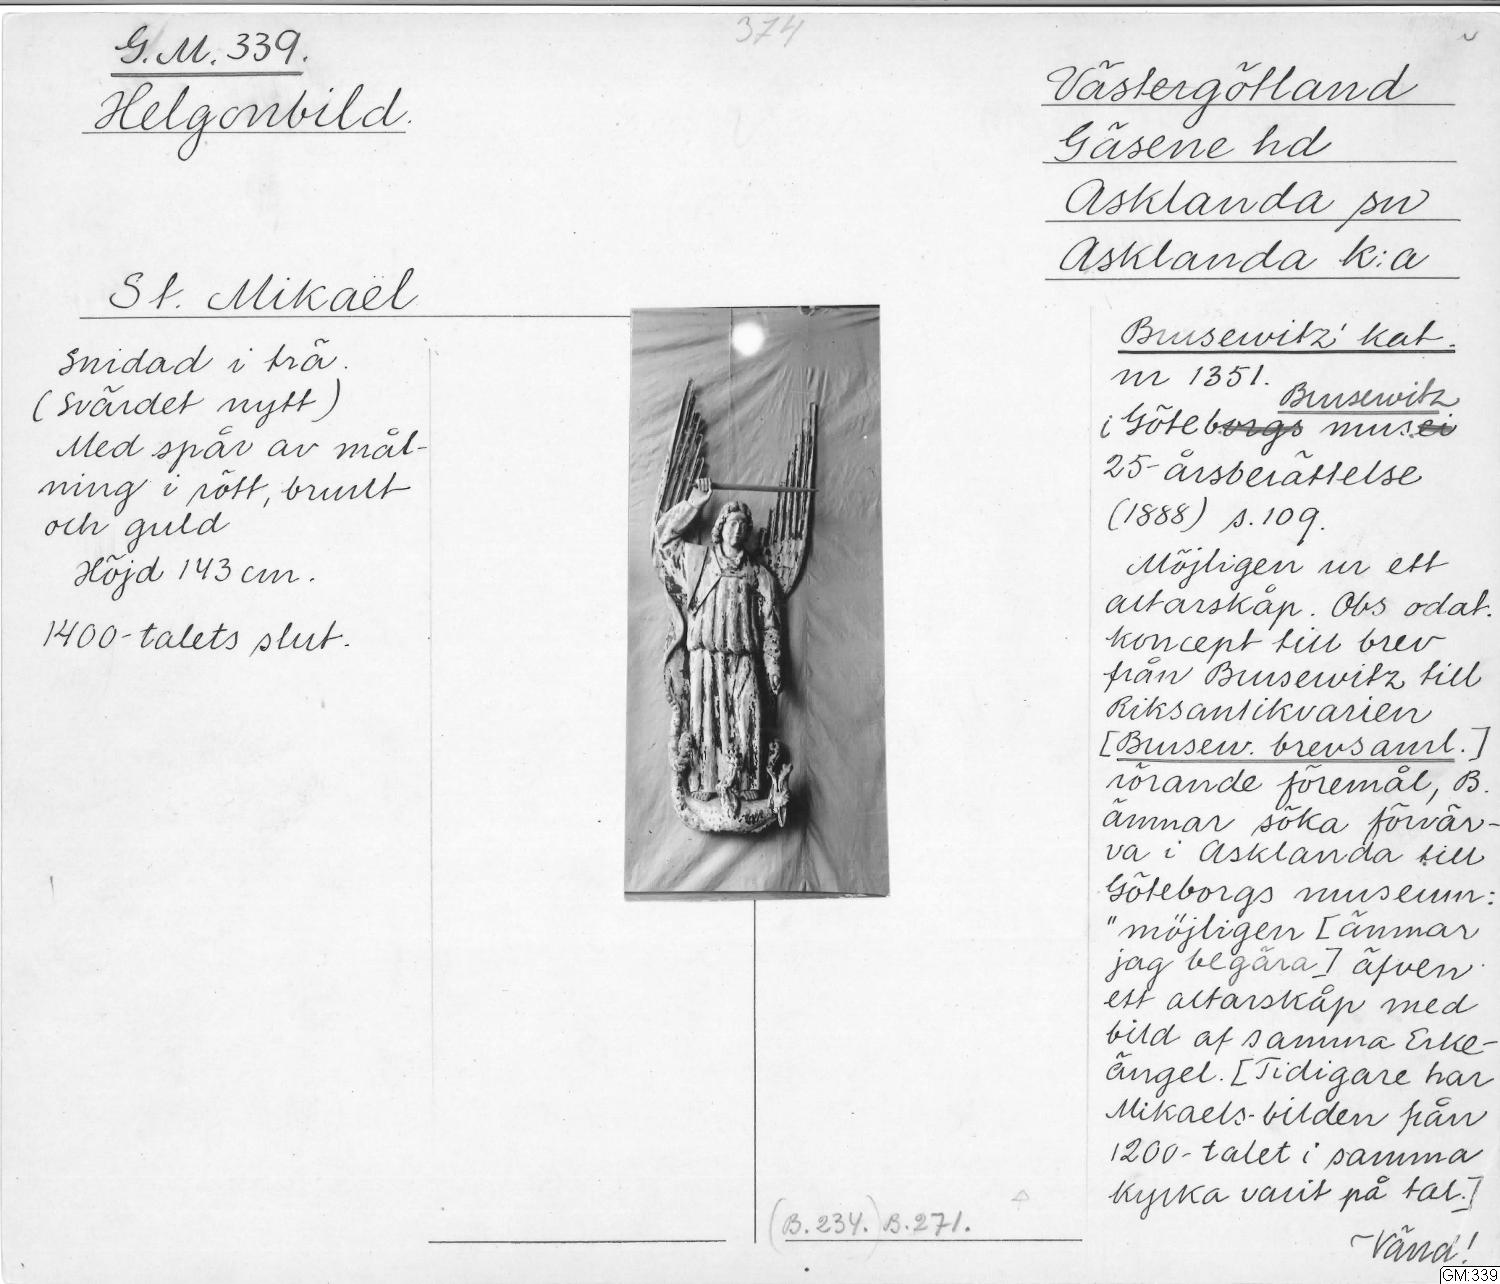 374
G.M. 339.
Helgonbild.
Västergötland
Gäsene hd
Asklanda sn
Asklanda k:a
St. Mikaël
Snidad i trä.
(Svärdet nytt)
Med spår av mål-
ning i rött, brunt
och guld
Höjd 143 cm.
1400-talets slut.
Brusewitz' kat.
nr 1351.
Brusewitz
i Göteborgs musei
25-årsberättelse
(1888) s. 109.
Möjligen ur ett
altarskåp. Obs odat.
koncept till brev
från Brusewitz till
Riksantikvarien
[Brusew. brevsaml.]
rörande föremål, B.
ämnar söka förvär-
va i Asklanda till
Göteborgs museum:
"möjligen [ämnar
jag begära] äfven
ett altarskåp med
bild af samma Erke-
ängel. [Tidigare har
Mikaels-bilden från
1200-talet i samma
kyrka varit på tal.]
Vänd!
(B. 234.) B. 271.
GM:339